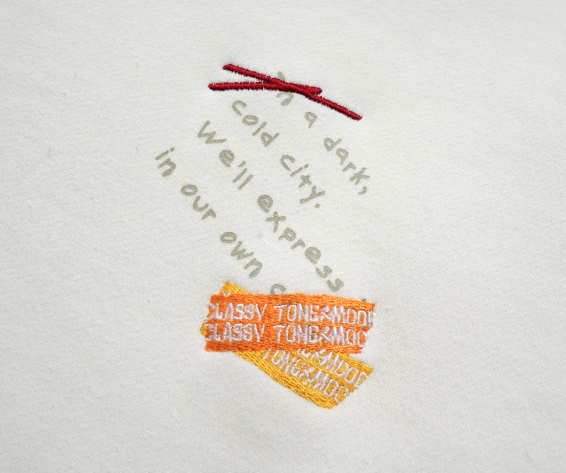 a dark,
cold city.
We'll express
in our own
CLASSY TONE&MOOD
CLASSY TONE&MOO
TONE&MOOD
TONE&MOO